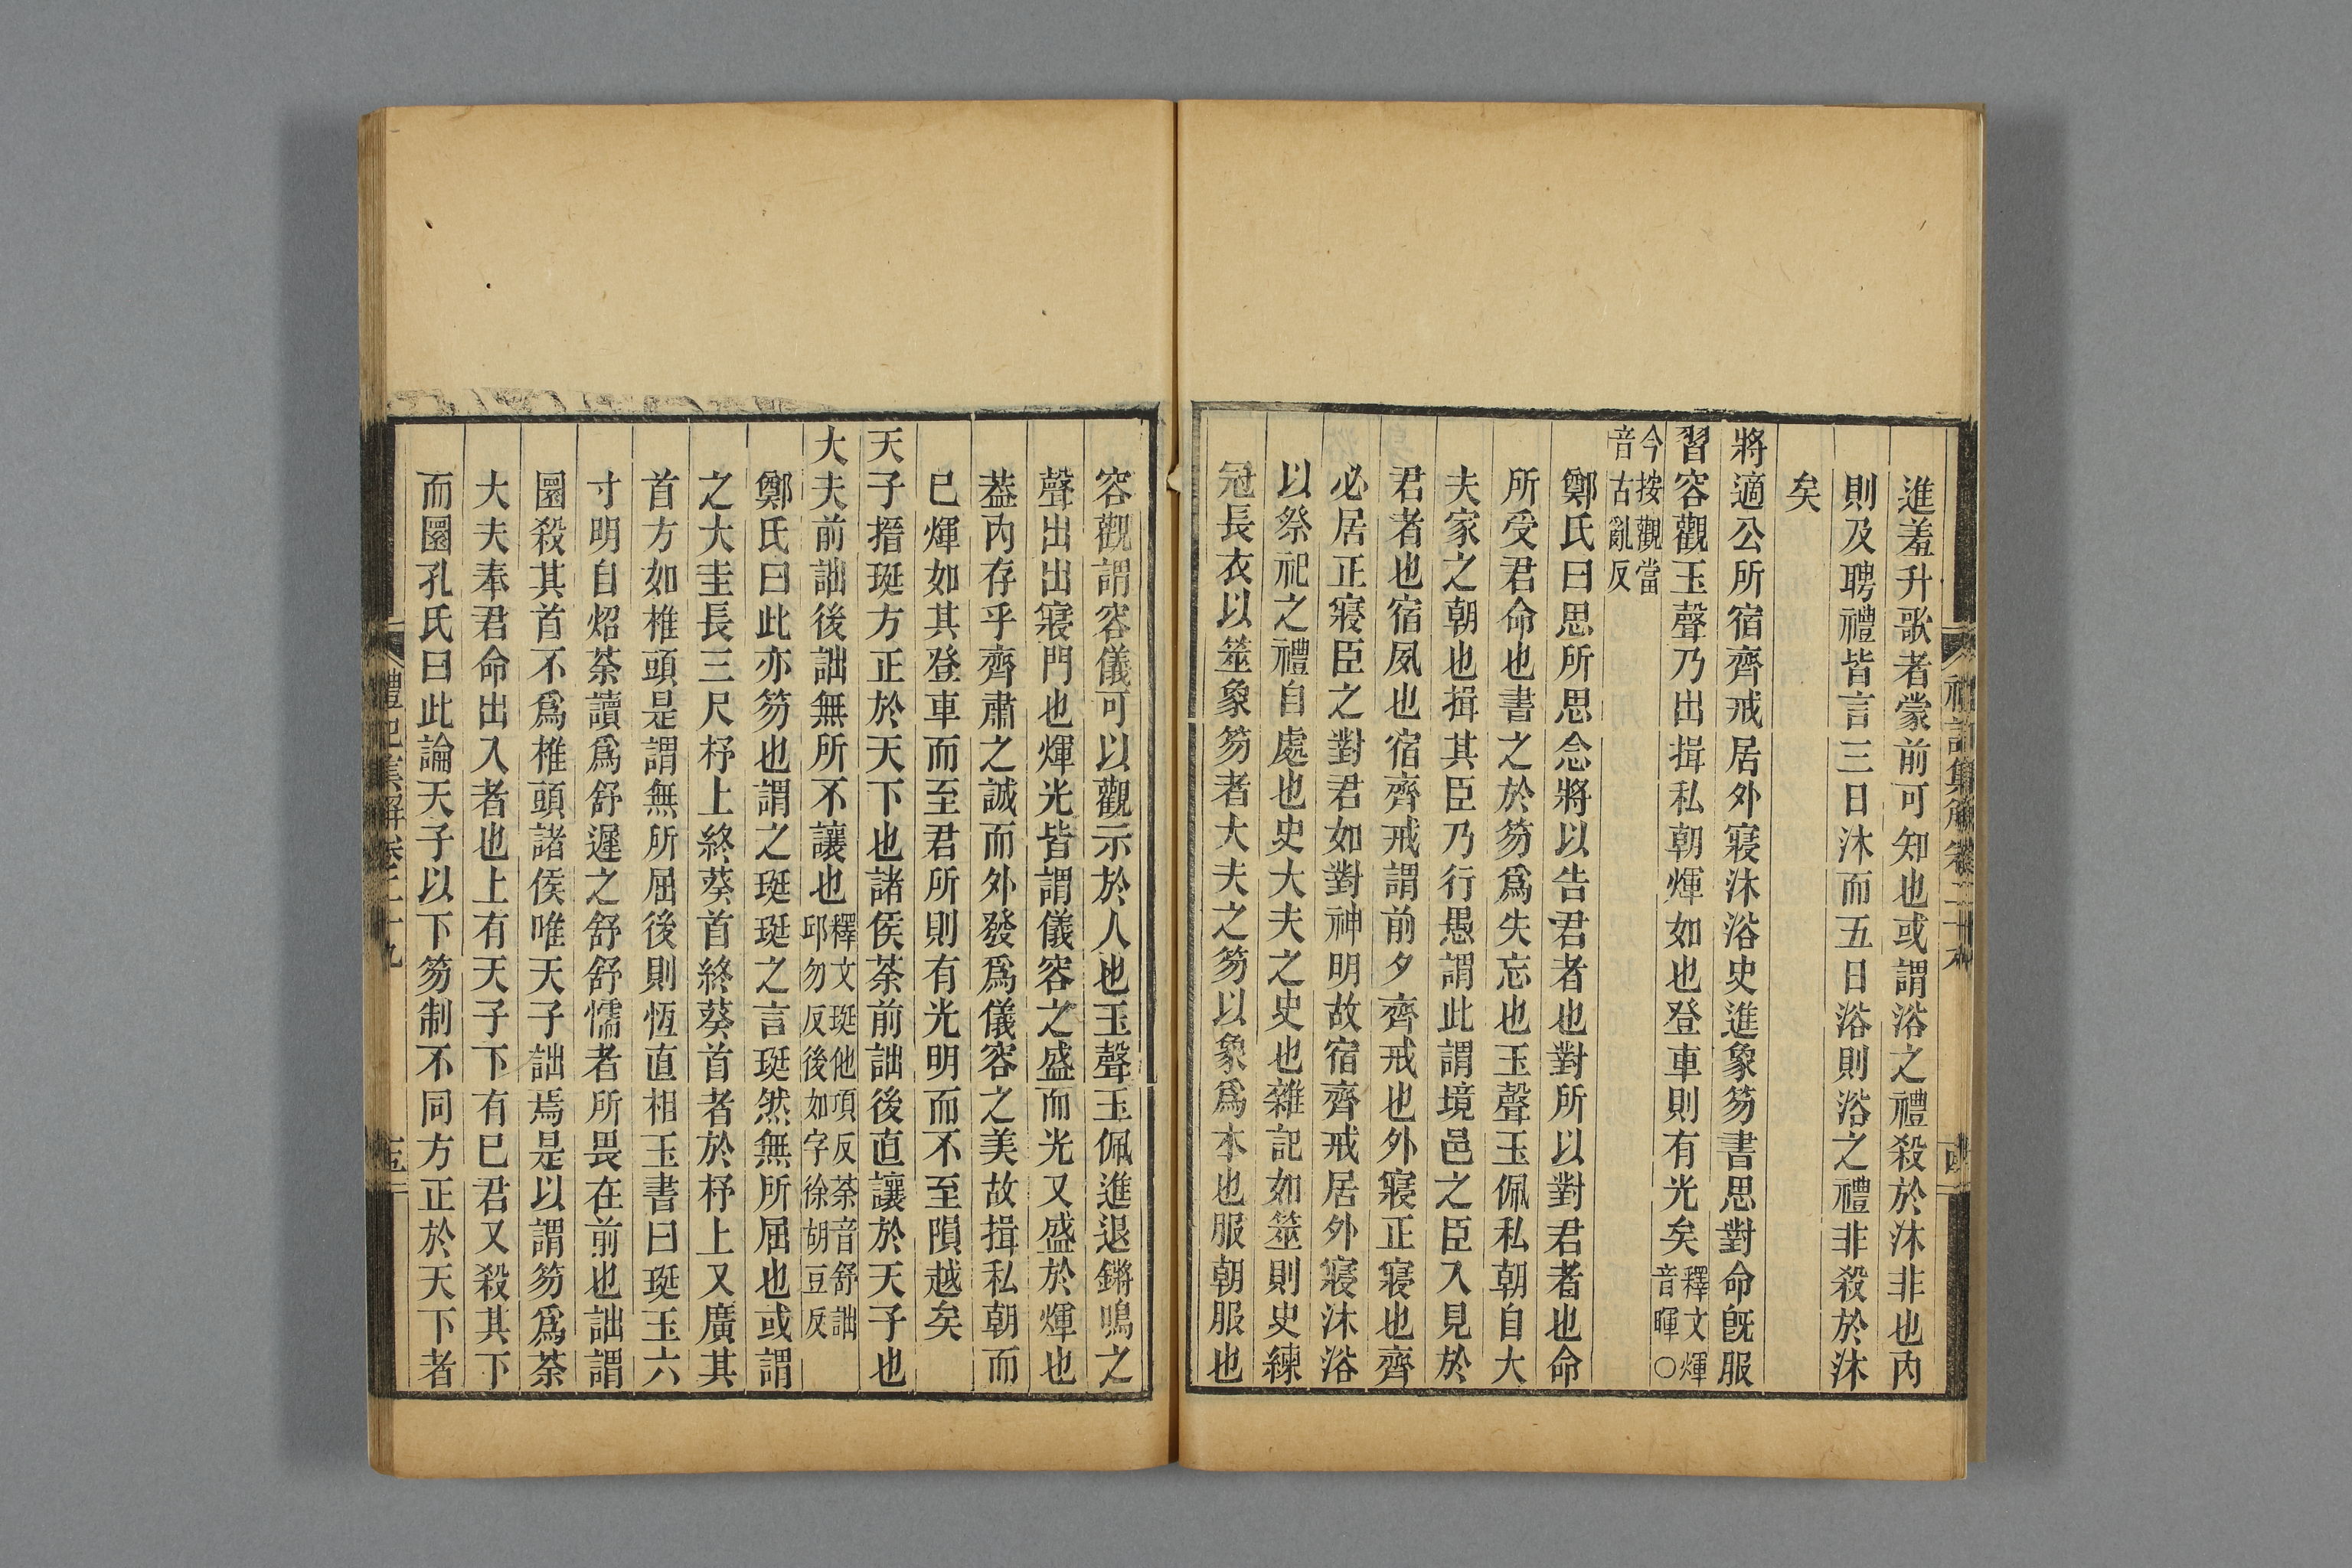 禮記集解卷二十九
進羞升歌者蒙前可知也或謂浴之禮殺於沐非也內
則及聘禮皆言三日沐而五日浴則浴之禮非殺於沐
矣
將適公所宿齊戒居外寢沐浴史進象笏書思對命旣服
習容觀玉聲乃出揖私朝煇如也登車則有光矣釋文煇音暉○
今按觀當音古亂反
鄭氏曰思所思念將以告君者也對所以對君者也命
所受君命也書之於笏爲失忘也玉聲玉佩私朝自大
夫家之朝也揖其臣乃行愚謂此謂境邑之臣入見於
君者也宿夙也宿齊戒謂前夕齊戒也外寢正寢也齊
必居正寢臣之對君如對神明故宿齊戒居外寢沐浴
以祭祀之禮自處也史大夫之史也雜記如筮則史練
冠長衣以筮象笏者大夫之笏以象爲本也服朝服也
容觀謂容儀可以觀示於人也玉聲玉佩進退鏘鳴之
聲出出寢門也煇光皆謂儀容之盛而光又盛於煇也
葢內存乎齊肅之誠而外發爲儀容之美故揖私朝而
已煇如其登車而至君所則有光明而不至隕越矣
天子搢珽方正於天下也諸侯荼前詘後直讓於天子也
大夫前詘後詘無所不讓也釋文珽他項反荼音舒詘邱勿反後如字徐胡豆反
鄭氏曰此亦笏也謂之珽珽之言珽然無所屈也或謂
之大圭長三尺杼上終葵首終葵首者於杼上又廣其
首方如椎頭是謂無所屈後則恆直相玉書曰珽玉六
寸明自炤荼讀爲舒遲之舒舒懦者所畏在前也詘謂
圜殺其首不爲椎頭諸侯唯天子詘焉是以謂笏爲荼
大夫奉君命出入者也上有天子下有已君又殺其下
而圜孔氏曰此論天子以下笏制不同方正於天下者
禮記集解卷二十九